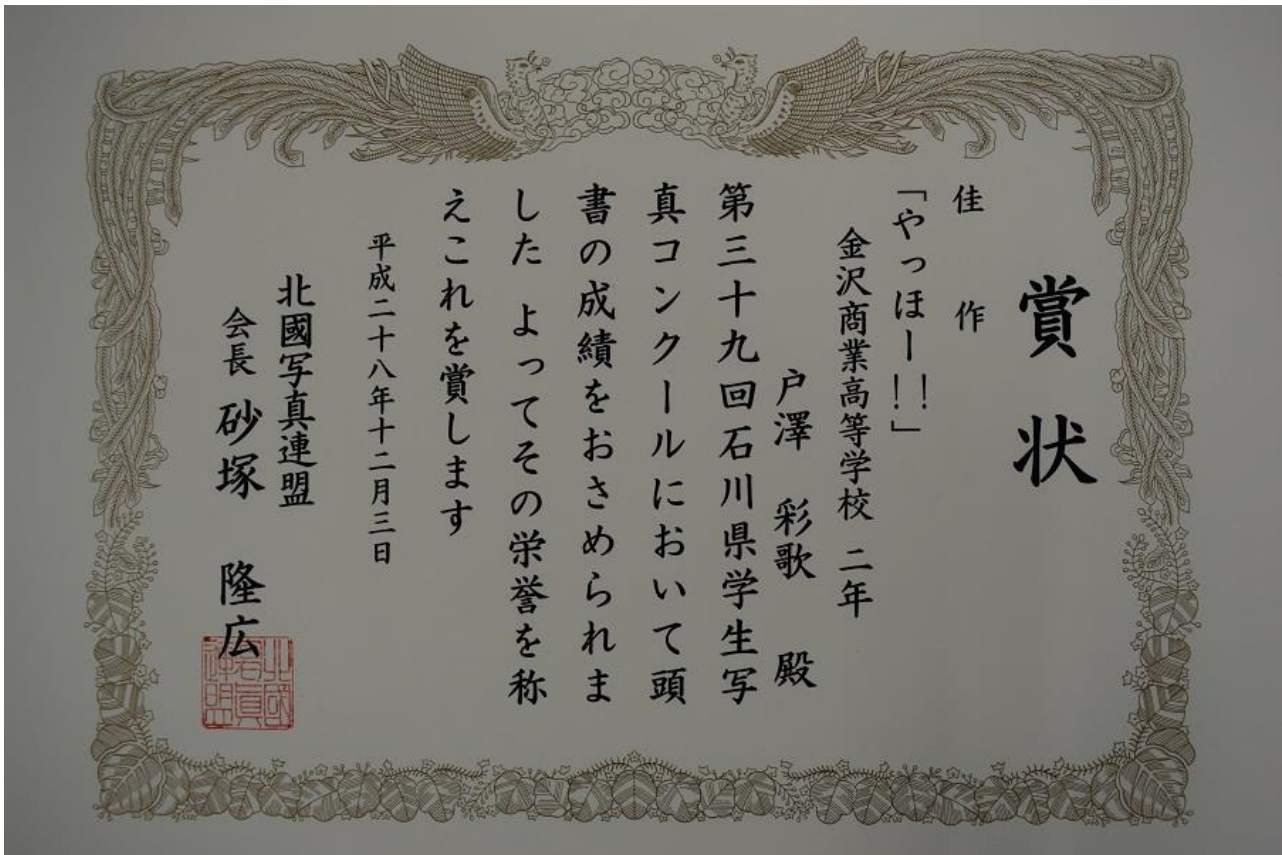 賞状
佳作
「やっほー!!」
金沢商業高等学校 二年
戸澤 彩歌 殿
第三十九回石川県学生写
真コンクールにおいて頭
書の成績をおさめられま
した よってその栄誉を称
えこれを賞します
平成二十八年十二月三日
北國写真連盟
会長 砂塚 隆広